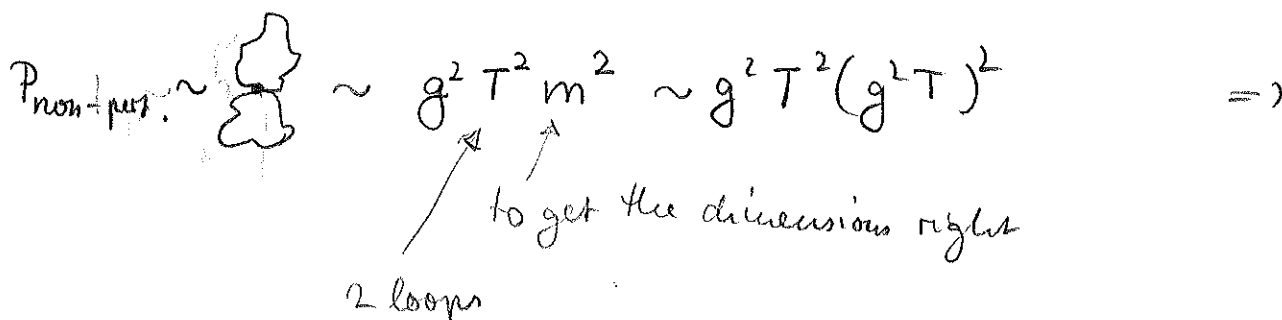 P_{non-pert.} ~ ~ g² T² m² ~ g² T² (g² T)² =>
to get the dimensions right
2 loops